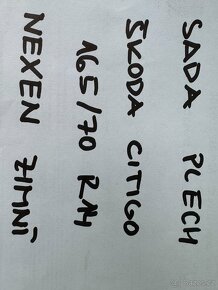 SADA PLECH
ŠKODA CITIGO
165/70 R14
NEXEN ZIMNÍ